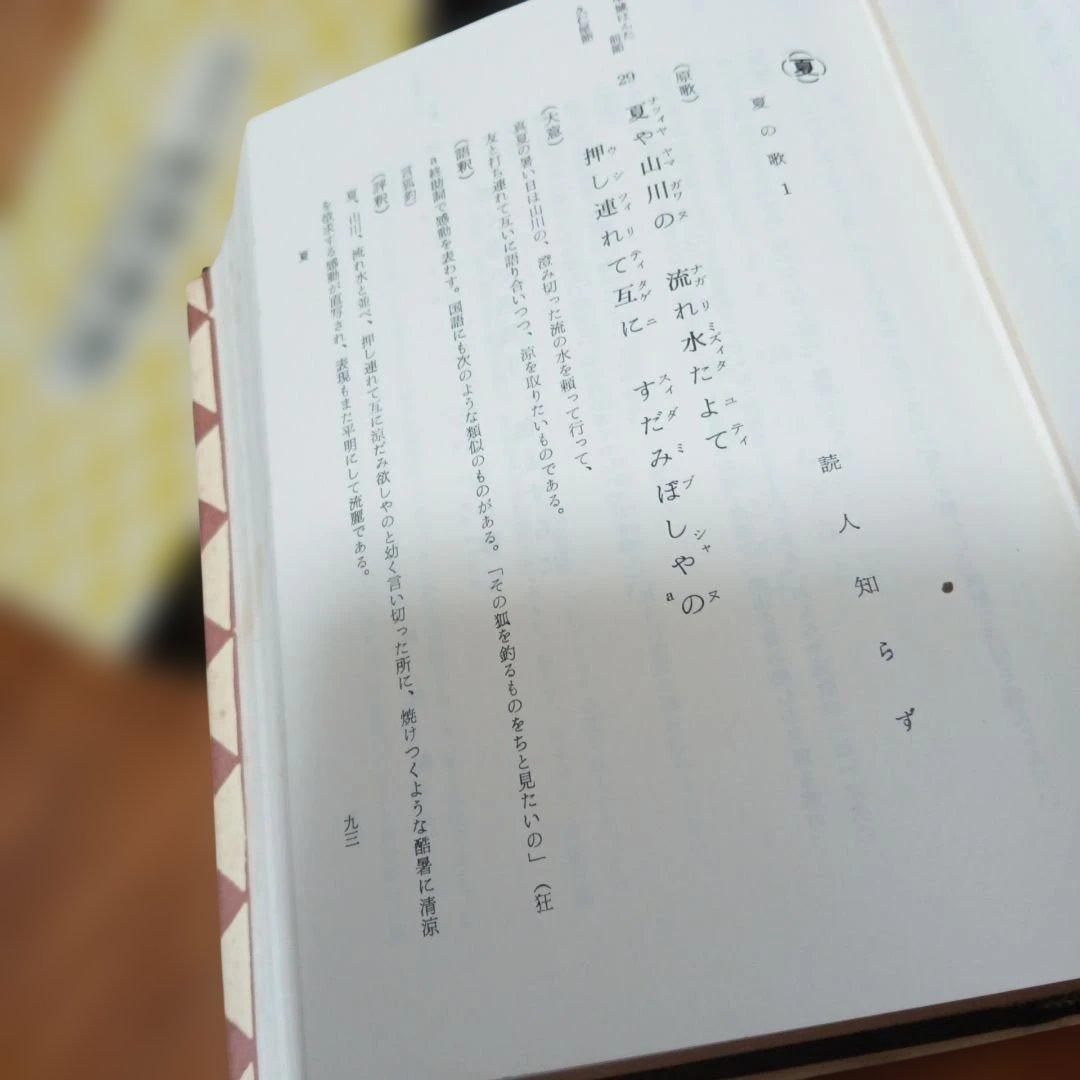 (夏)
夏の歌 1
読人知らず
(原歌)
29 夏や山川の 流れ水たよて
ナツィヤ ヤマ ガワヌ ナガ リ ミズィタ ユティ
押し連れて互に すだみぼしやの
ウシ ツィリ ティタゲ ニ スィダ ミブ シャヌ
a
(大意)
真夏の暑い日は山川の、澄み切った流の水を頼って行って、
友と打ち連れて互いに語り合いつつ、涼を取りたいものである。
(語釈)
a終助詞で感動を表わす。国語にも次のような類似のものがある。「その狐を釣るものをちと見たいの」(狂
言狐釣)
(評釈)
夏、山川、流れ水と並べ、押し連れて互に涼だみ欲しやのと幼く言い切った所に、焼けつくような酷暑に清涼
を欲求する感動が直写され、表現もまた平明にして流麗である。
夏
九三